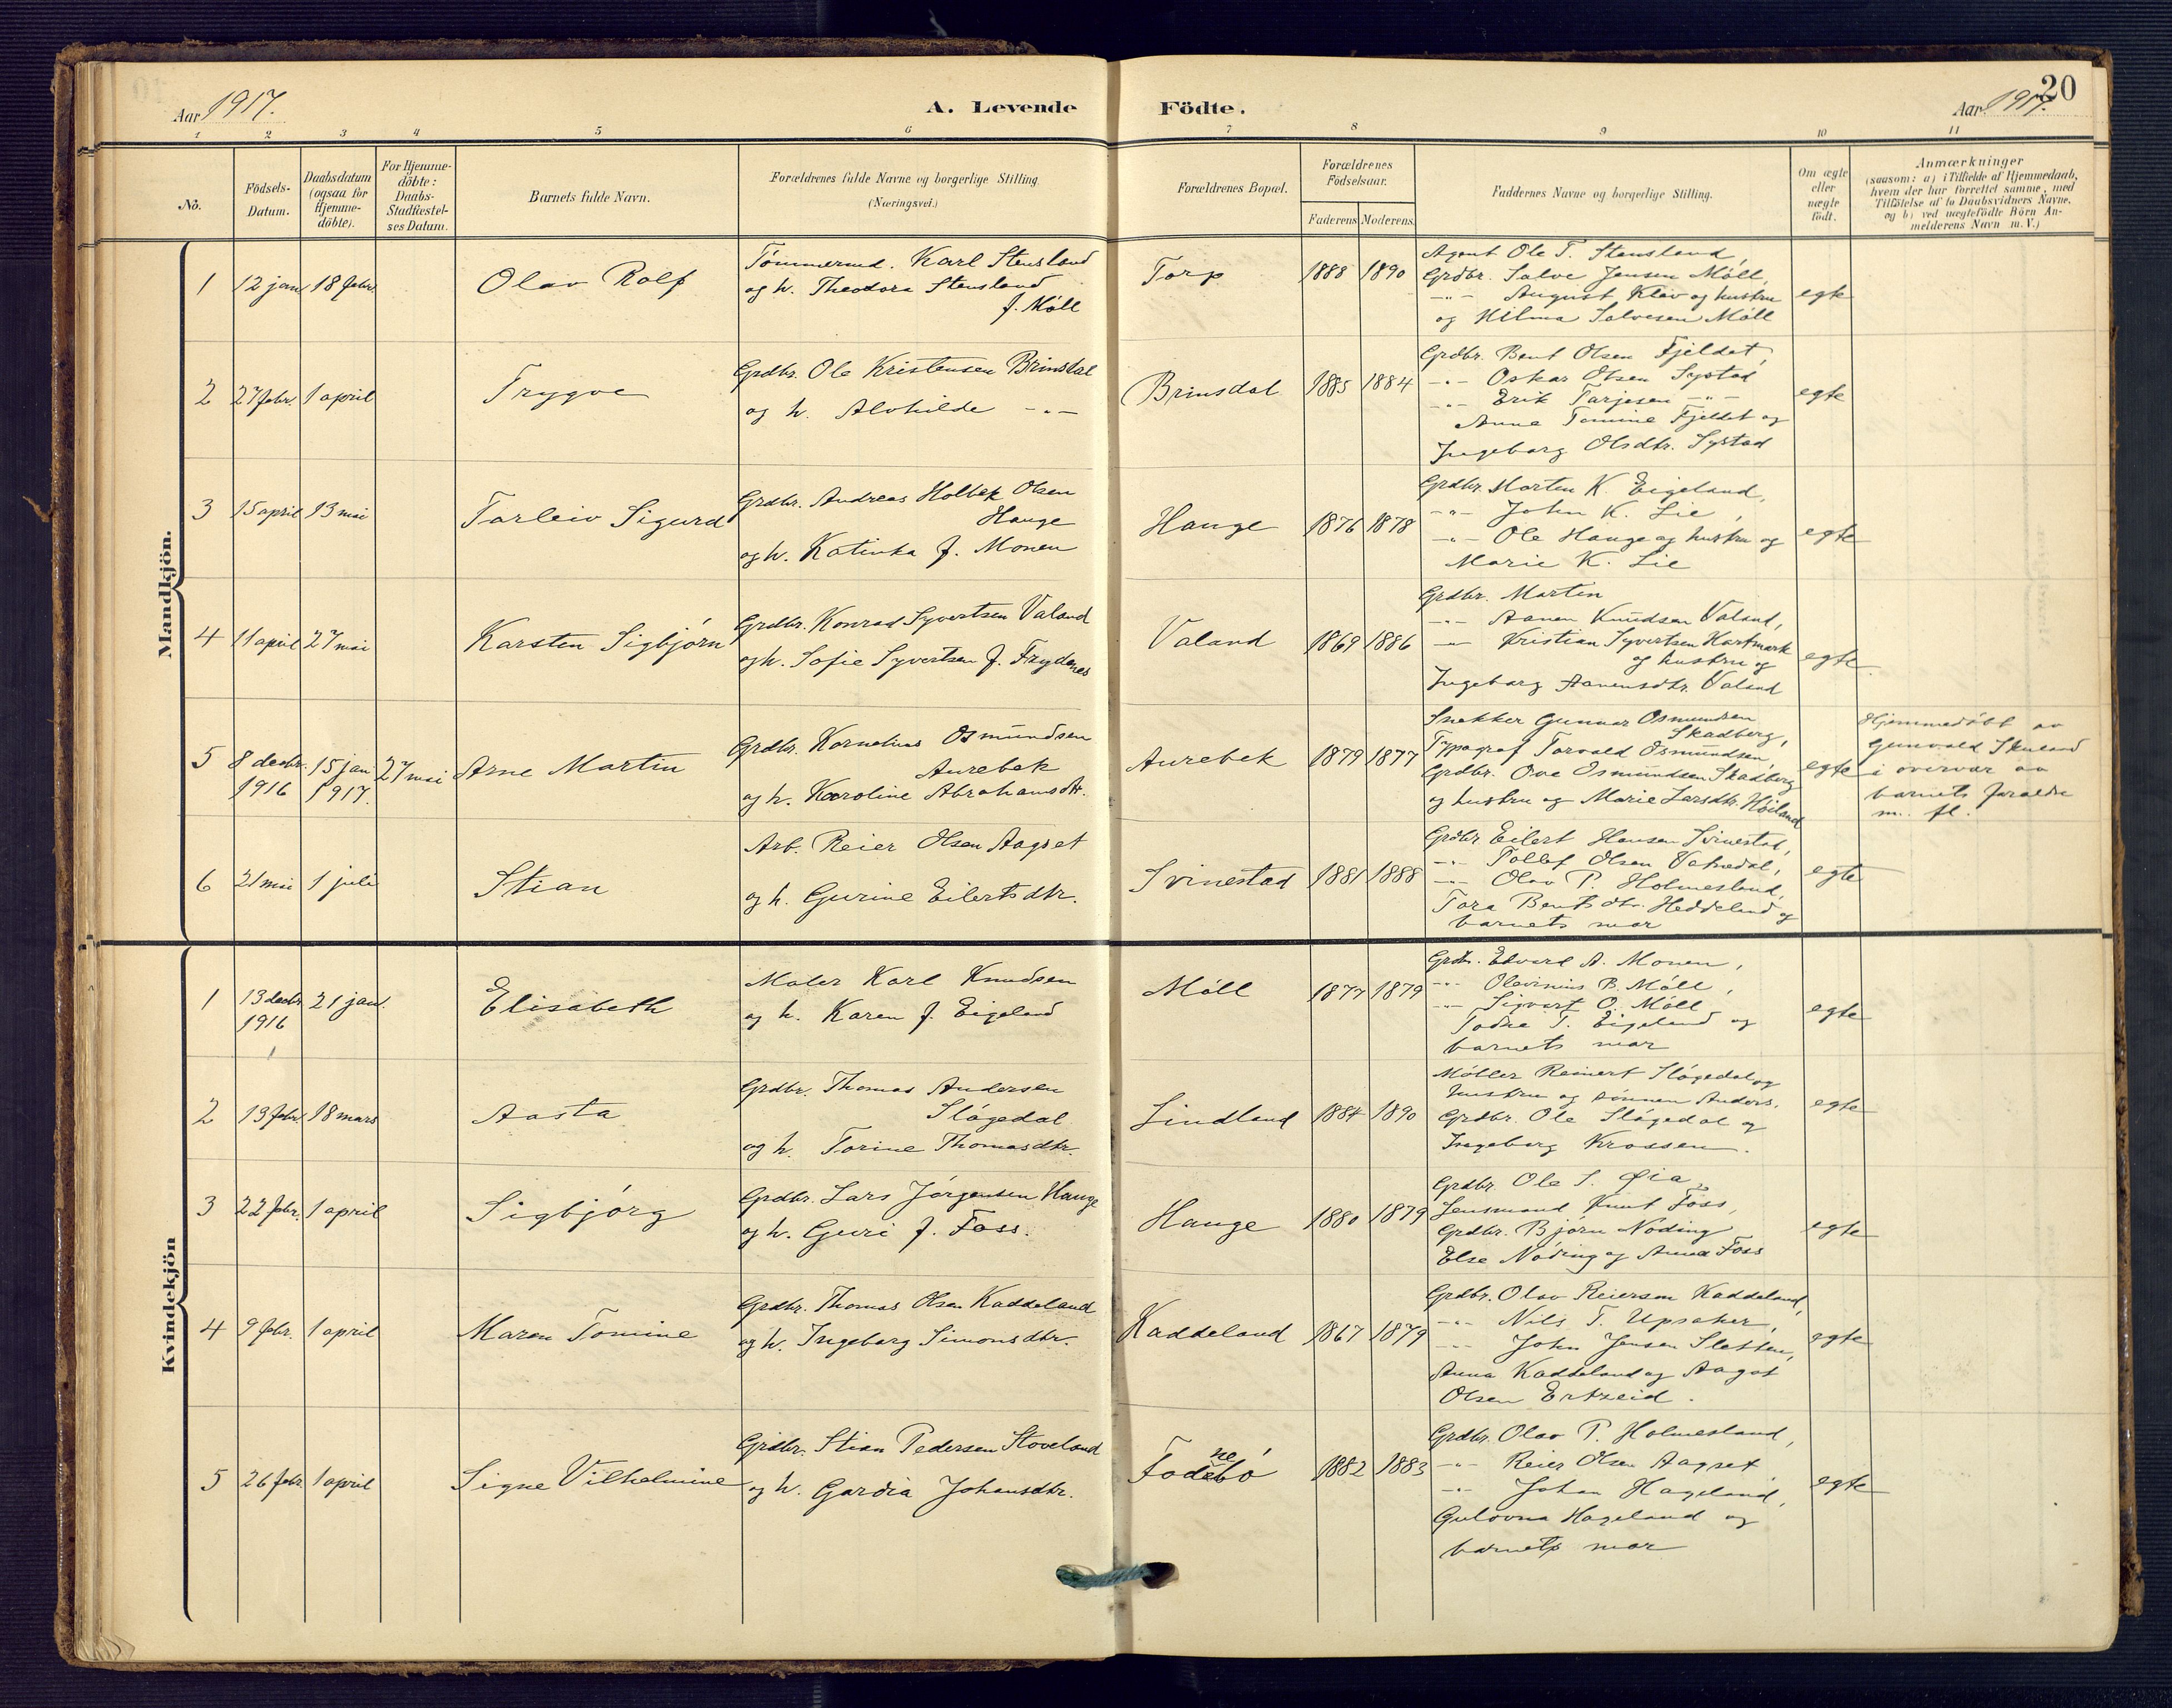 Aar 1917.
A. Levende Födte.
20
Aar 1917.
1 2 3 4 5 6 7 8 9 10 11
No.
Födsels-Datum.
Daabsdatum (ogsaa for Hjemme-döbte).
For Hjemme-döbte: Daabs-Stadfæstel-ses Datum.
Barnets fulde Navn.
Forældrenes fulde Navne og borgerlige Stilling. (Næringsvei.)
Forældrenes Bopæl.
Forældrenes Födselsaar.
Faderens Moderens.
Faddernes Navne og borgerlige Stilling.
Om ægte eller uægte födt.
Anmærkninger
(saasom: a) i Tilfælde af Hjemmedaab,
hvem der har forrettet samme, med
Tilföielse af to Daabsvidners Navne,
og b) ved uægtefödte Börn An-
melderens Navn m. V.)
Mandkjön.
1 12 jan. 18 febr. Olav Rolf
Tömmermd. Karl Stensland
og h. Theodora Stensland
f. Möll
Torp 1888 1890
Agent Ole T. Stensland,
Grdbr. Salve Jensen Möll,
-"- August Kleiv og hustru
og Hilma Salvesen Möll
egte
2 27 febr. 1 april Trygve
Grdbr. Ole Kristensen Brinsdal
og h. Alvhilde -"-
Brinsdal 1885 1884
Grdbr. Bent Olsen Fjeldet,
-"- Oskar Olsen Systad
-"- Erik Tarjesen -"-
Anna Tomine Fjeldet og
Ingeborg Olsdtr. Systad
egte
3 15 april 13 mai Torleiv Sigurd
Grdbr. Andreas Holbek Olsen
Hauge
og h. Katinka f. Monen
Hauge 1876 1878
Grdbr. Morten K. Eigeland,
-"- John K. Lie,
-"- Ole Hauge og hustru og
Marie K. Lie
egte
4 11 april 27 mai Karsten Sigbjörn
Grdbr. Konrad Syvertsen Valand
og h. Sofie Syvertsen f. Frydenes
Valand 1869 1886
Grdbr. Martin
-"- Aanen Knudsen Valand,
-"- Kristian Syvertsen Hartmark
og hustru og
Ingeborg Aanensdtr. Valand
egte
5 8 decbr. 1916 15 jan 1917. 27 mai Arne Martin
Grdbr. Kornelius Osmundsen
Aurebek
og h. Karoline Abrahamsdtr.
Aurebek 1879 1877
Snekker Gunnar Osmundsen
Skadberg,
Typograf Torvald Osmundsen,
Grdbr. Ove Osmundsen Skadberg
og hustru og Marie Larsdtr. Höiland
egte
Hjemmedöbt av
Gunvald Skuland
i overvær av
barnets foreldre
m. fl.
6 21 mai 1 juli Stian
Arb. Reier Olsen Aagset
og h. Gurine Eilertsdtr.
Svinestad 1881 1888
Grdbr. Eilert Hansen Svinestad,
-"- Tollef Olsen
-"- Olav P. Holmesland,
Tora Bentsdtr. Heddeland og
barnets mor
egte
Kvindekjön
1 13 decbr. 1916 21 jan. Elisabeth
Maler Karl Knudsen
og h. Karen f. Eigeland
Möll 1877 1879
Grdbr. Edvard A. Monen,
-"- Olevinius B. Möll,
-"- Sigvart O. Möll
Todne T. Eigeland og
barnets mor
egte
2 13 febr. 18 mars Aasta
Grdbr. Thomas Andersen
Slögedal
og h. Torine Thomasdtr.
Lindland 1884 1890
Möller Reinert Slögedal og
hustru og sönnen Anders.
Grdbr. Ole Slögedal og
Ingeborg Krossen.
egte
3 22 febr. 1 april Sigbjörg
Grdbr. Lars Jörgensen Hauge
og h. Guri f. Foss.
Hauge 1880 1879
Grdbr. Ole S. Øia,
Lensmand Knut Foss,
Grdbr. Björn Nöding
Else Nöding og Anna Foss
egte
4 9 febr. 1 april Maren Tomine
Grdbr. Thomas Olsen Kaddeland
og h. Ingeborg Simonsdtr.
Kaddeland 1867 1879
Grdbr. Olav Reiersen Kaddeland,
-"- Nils T. Upsaker,
-"- John Jensen Sletten,
Anna Kaddeland og Aagot
Olsen Ertzeid.
egte
5 26 febr. 1 april Signe Vilhelmine
Grdbr. Stian Pedersen Stoveland
og h. Gardia Johansdtr.
Fodnebö 1882 1883
Grdbr. Olav P. Holmesland,
-"- Reier Olsen Aagset
-"- Johan Hageland,
Gulovna Hageland og
barnets mor
egte